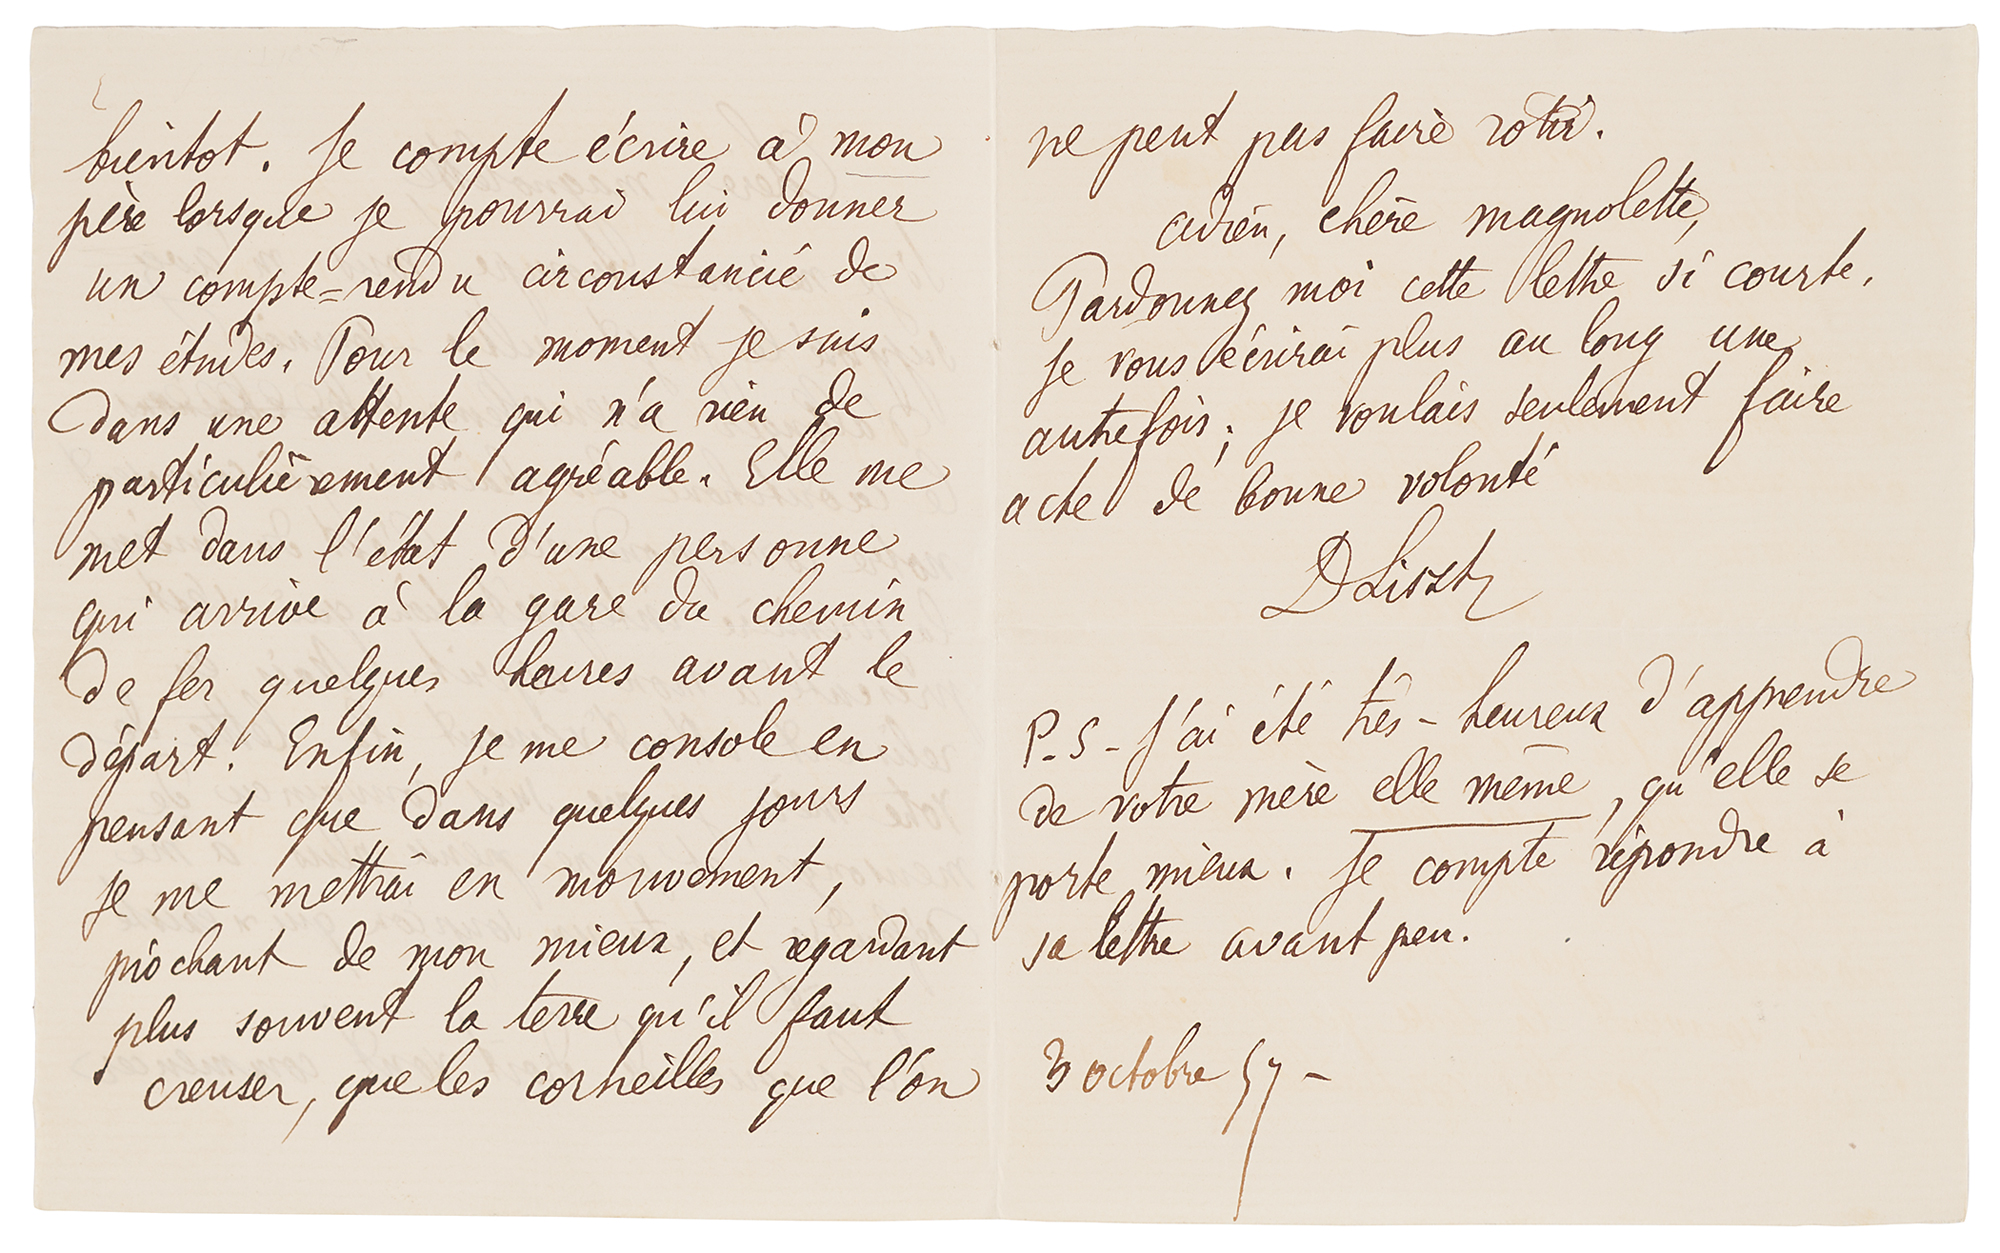 bientot. Je compte écrire à mon
père lorsque je pourrai lui donner
un compte=rendu circonstancié de
mes études. Pour le moment je suis
dans une attente qui n'a rien de
particulièrement agréable. Elle me
met dans l'état d'une personne
qui arrive à la gare du chemin
de fer quelques heures avant le
départ. Enfin, je me console en
pensant que dans quelques jours
je me mettrai en mouvement,
piochant de mon mieux, et regardant
plus souvent la terre qu'il faut
creuser, que les corneilles que l'on
ne peut pas faire rotir.
adieu, chère magnolette,
Pardonnez moi cette lettre si courte.
je vous écrirai plus au long une
autrefois; je voulais seulement faire
acte de bonne volonté
D Liszt
P.S - J'ai été très-heureux d'apprendre
de votre mère elle même, qu'elle se
porte mieux. Je compte répondre à
sa lettre avant peu.
3 octobre 57 -